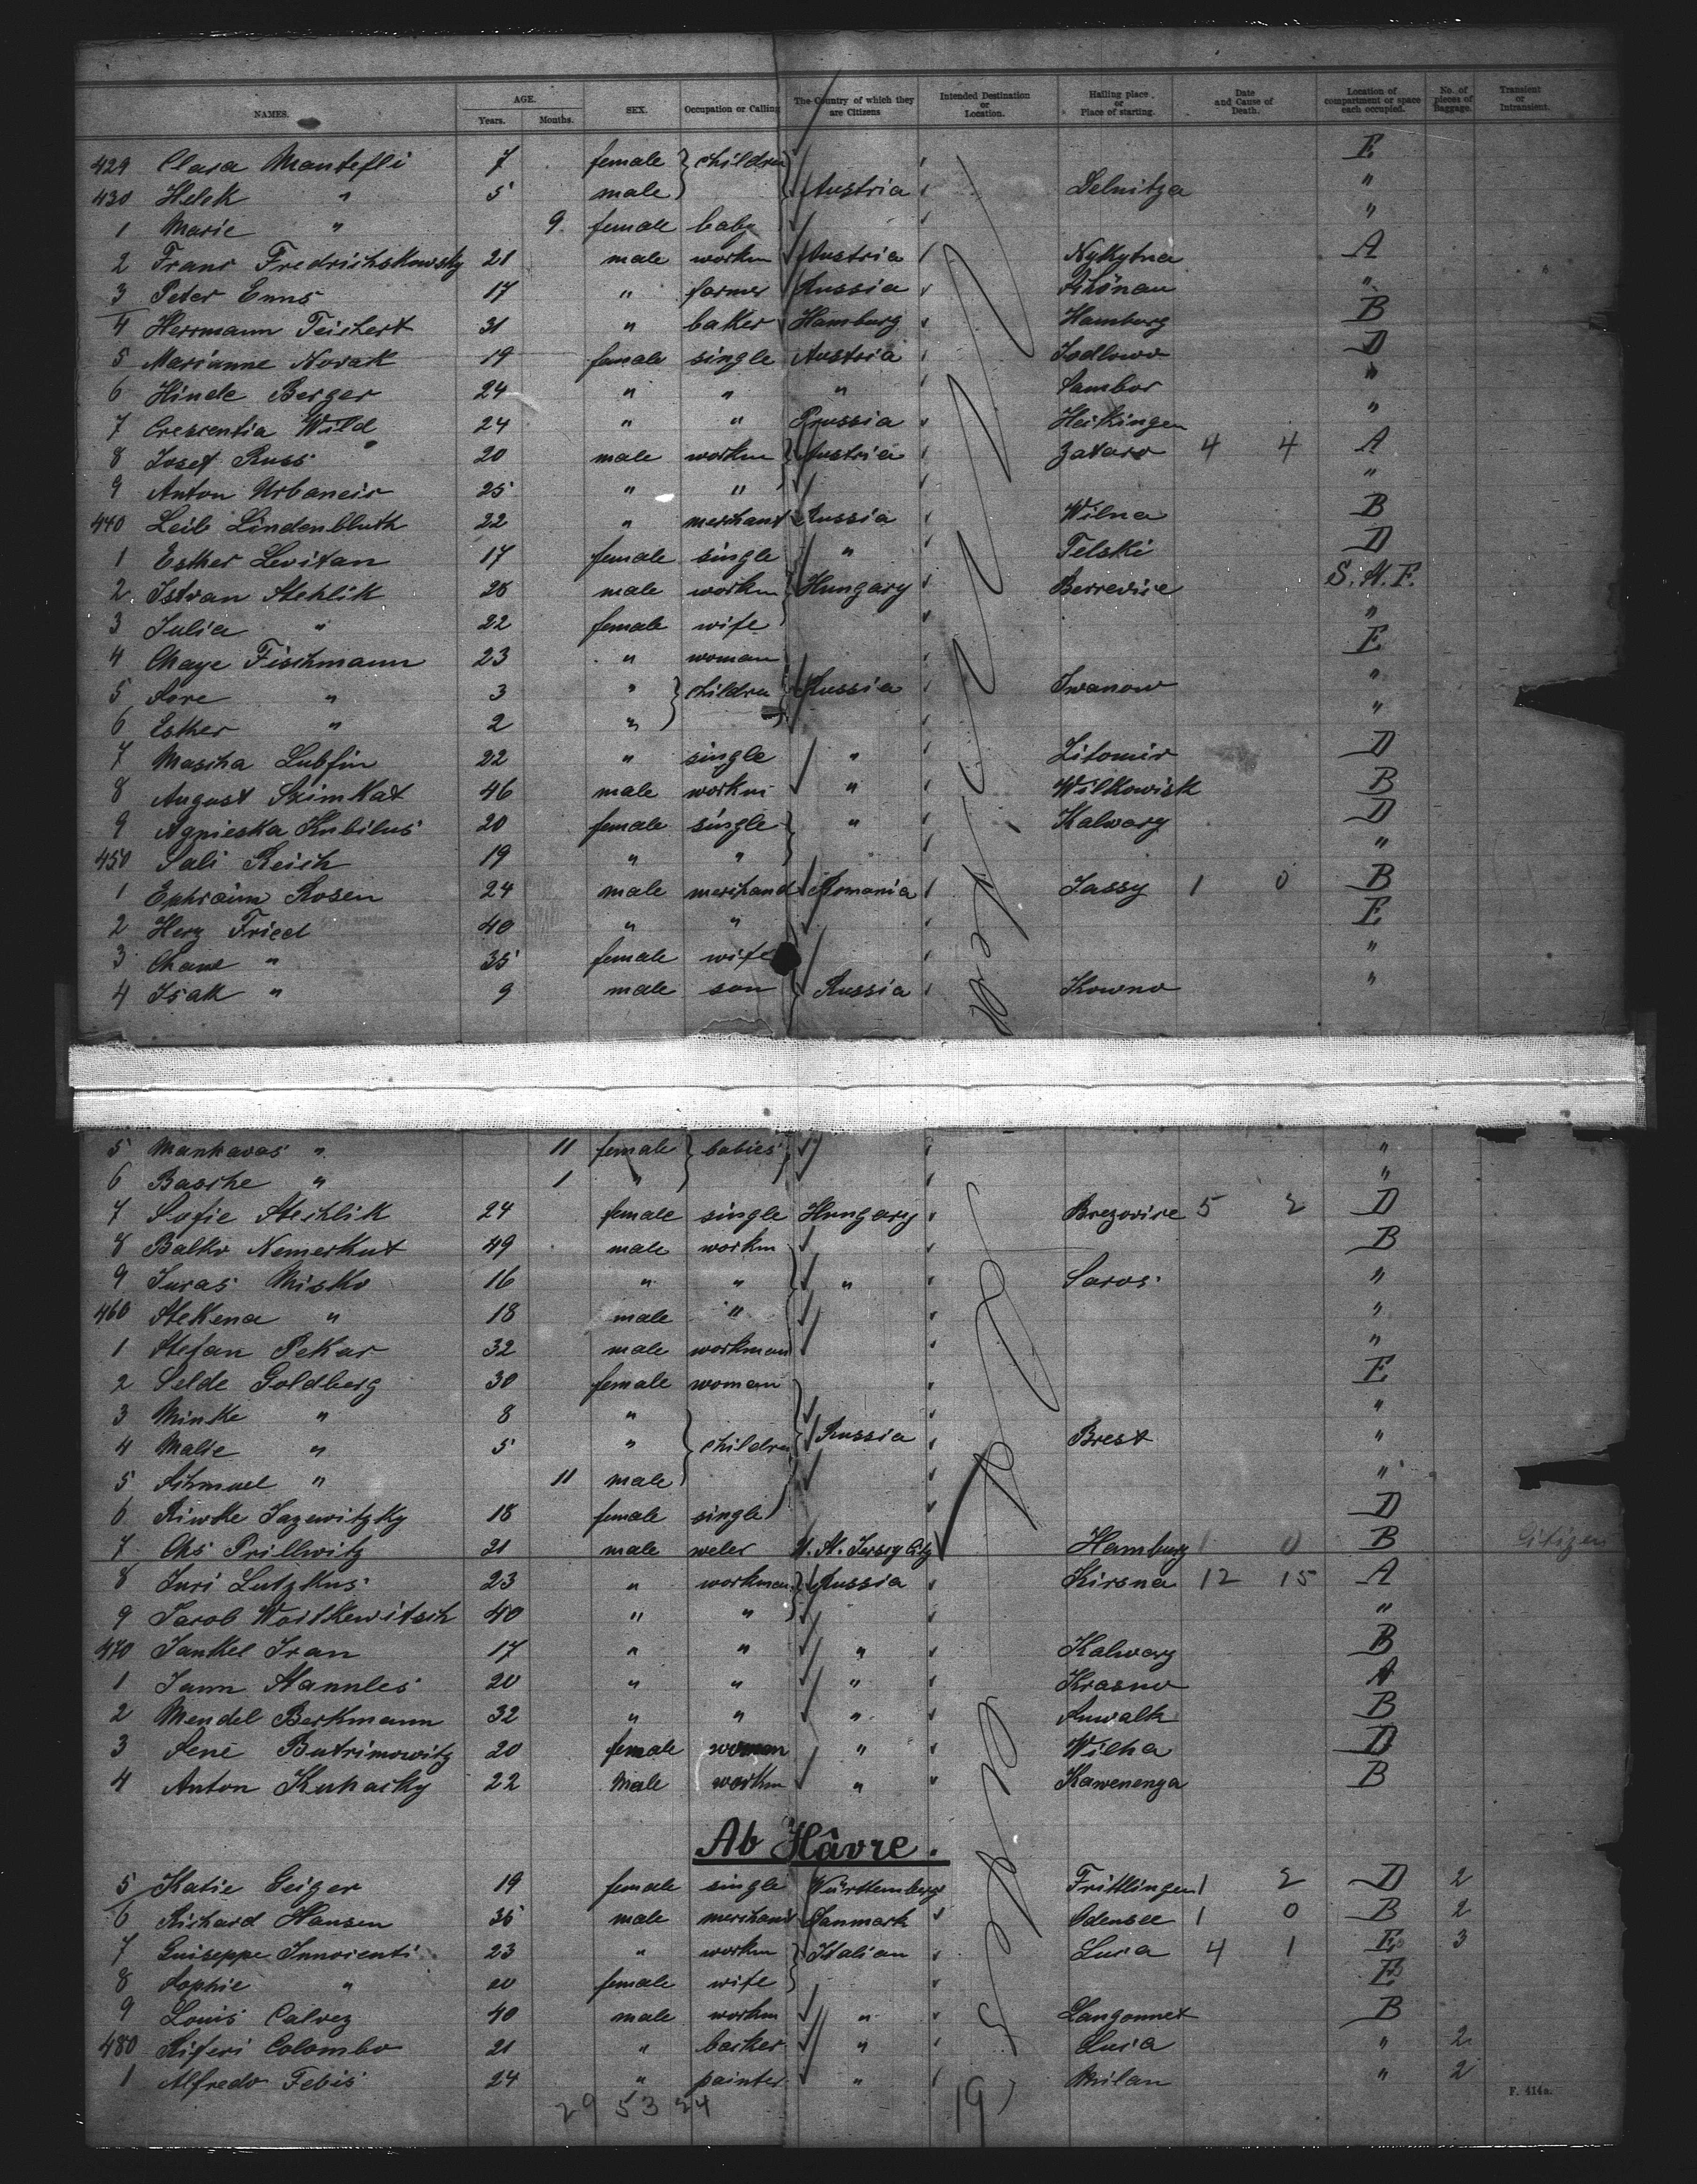 NAMES. AGE. Years. Months. SEX. Occupation or Calling The Country of which they are Citizens Intended Destination or Location. Halling place or Place of starting. Date and Cause of Death. Location of compartment or space each occupied. No. of pieces of Baggage. Transient or Intransient.
429 Clara Mantefli 7 female children E
430 Helek " 5 male Austria Delnitza "
1 Marie " 9 female baby "
2 Franz Fredrichskowsky 21 male workm Austria Nykytna A
3 Peter Enns 17 " farmer Russia Schönau "
4 Herrmann Teichert 31 " baker Hamburg Hamburg B
5 Marianne Novak 19 female single Austria Jodlowo D
6 Hinde Berger 24 " " " Sambor "
7 Crescentia Wild 24 " " Prussia Heikingen "
8 Josef Russ 20 male workm Austria Zataro 4 4 A
9 Anton Urbancic 25 " " "
440 Leib Lindenbluth 22 " merchant Russia Wilna B
1 Esther Levitan 17 female single " Telski D
2 Istvan Stehlik 28 male workm Hungary Berrevice S. H. F.
3 Julia " 22 female wife "
4 Chaye Fischmann 23 " woman E
5 Sore " 3 " children Russia Iwanow "
6 Esther " 2 " "
7 Mascha Lubfin 22 " single " Zitomir D
8 August Szimkat 46 male workm " Wilkowisk B
9 Agnieska Kubilus 20 female single " Kalwary D
450 Sali Reich 19 " " "
1 Ephraim Rosen 24 male merchand Romania Jassy 1 0 B
2 Herz Fried 40 " " E
3 Chane " 35 female wife "
4 Isak " 9 male son Russia Kowno "
5 Mankavas " 11 female babies "
6 Basche " 1 " "
7 Sofie Stechlik 24 female single Hungary Brezovice 5 2 D
8 Balko Nemerkut 49 male workm B
9 Juras Misko 16 " " " Saros "
460 Stekena " 18 male " "
1 Stefan Pekar 32 male workman "
2 Selde Goldberg 30 female woman E
3 Minke " 8 " "
4 Malie " 5 " children Russia Brest "
5 Schmuel " 11 male "
6 Riwke Jazewitzky 18 female single D
7 Chs Prillwitz 21 male weler U. St. Jersey City Hamburg 1 0 B Citizen
8 Juri Lutzkus 23 " workman Russia Kirsna 12 15 A
9 Jacob Woitkewitsch 40 " " "
470 Jankel Iran 17 " " " Kalwary B
1 Jann Stannles 20 " " " Krasno A
2 Mendel Berkmann 32 " " " Suwalk B
3 Sene Butrimowitz 20 female woman " Wilna D
4 Anton Kuhacky 22 Male workm " Kawenenga B
Ab Hâvre.
5 Katie Geiger 19 female single Württemberg Frittlingen 1 2 D 2
6 Richard Hansen 36 male merchant Danmark Odensee 1 0 B 2
7 Guiseppe Innocenti 23 " workm Italian Luca 4 1 E 3
8 Sophie " 20 female wife E
9 Louis Calvez 40 male workm " Langonnet B
480 Rifieri Colombo 21 " barker " Luca " 2
1 Alfredo Febis 24 " painter " Milan " 2
29 53 24 19
F. 414a.